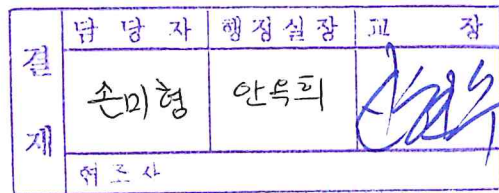 결재 담당자 행정실장 교장
손미형 안옥희
협조사